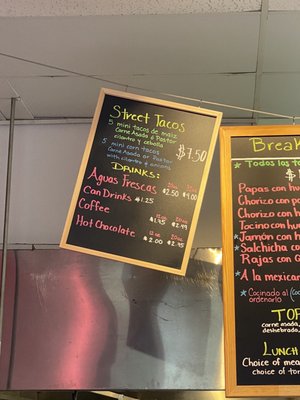 Street Tacos
5 mini tacos de maiz
Carne Asada ó Pastor
cilantro y cebolla
5 mini corn tacos
Carne Asada or Pastor
with cilantro & onions
$7.50
DRINKS:
Aguas Frescas $2.50 $4.00
Can Drinks $1.25
Coffee $1.95 $2.49
12oz 20oz
Hot Chocolate $2.00 $2.45
Break
*Todos los t
Papas con hu
Chorizo con p
Chorizo con h
Tocino con hu
*Jamón con h
*Salchicha co
Rajas con q
*A la mexican
*Cocinado al
ordenarlo
TOR
carne asada,
deshebrada,
LUNCH
Choice of mea
choice of tor